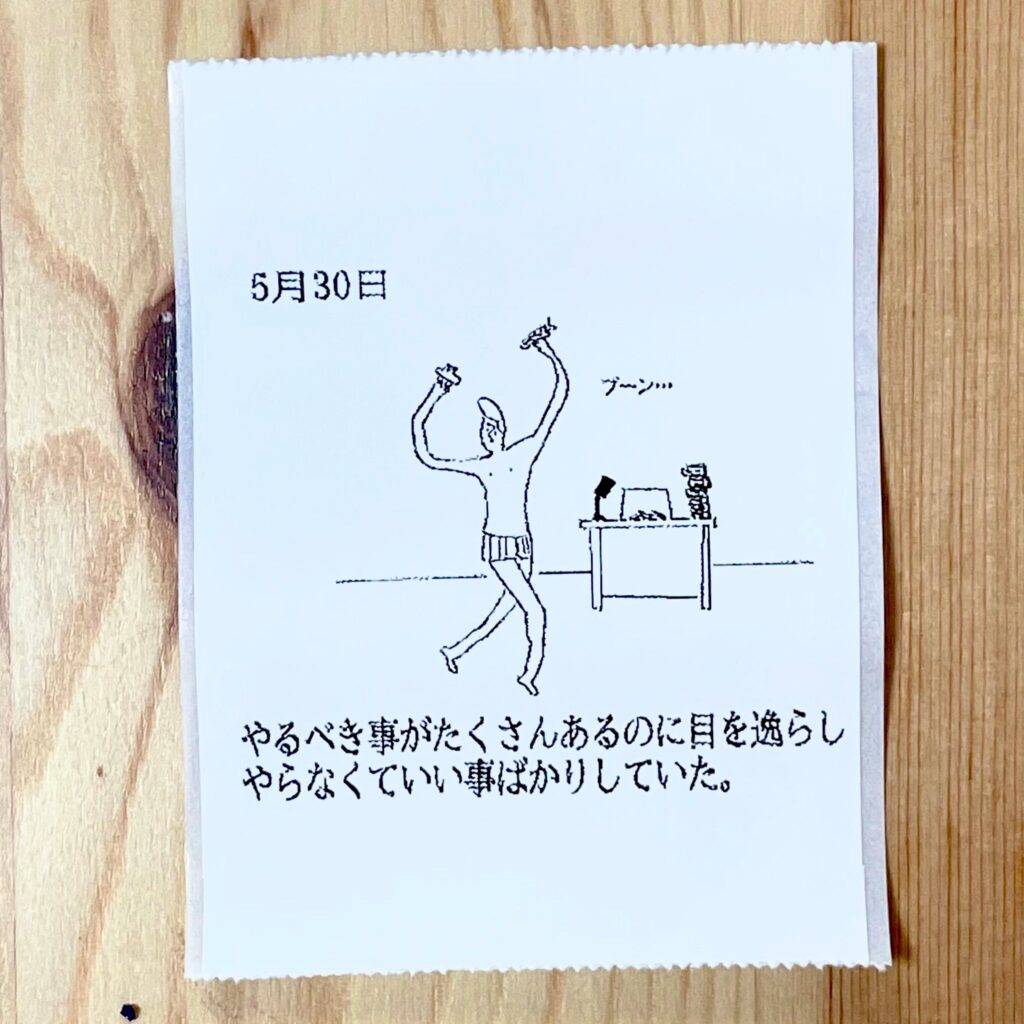 5月30日
ブ〜ン…
やるべき事がたくさんあるのに目を逸らし
やらなくていい事ばかりしていた。